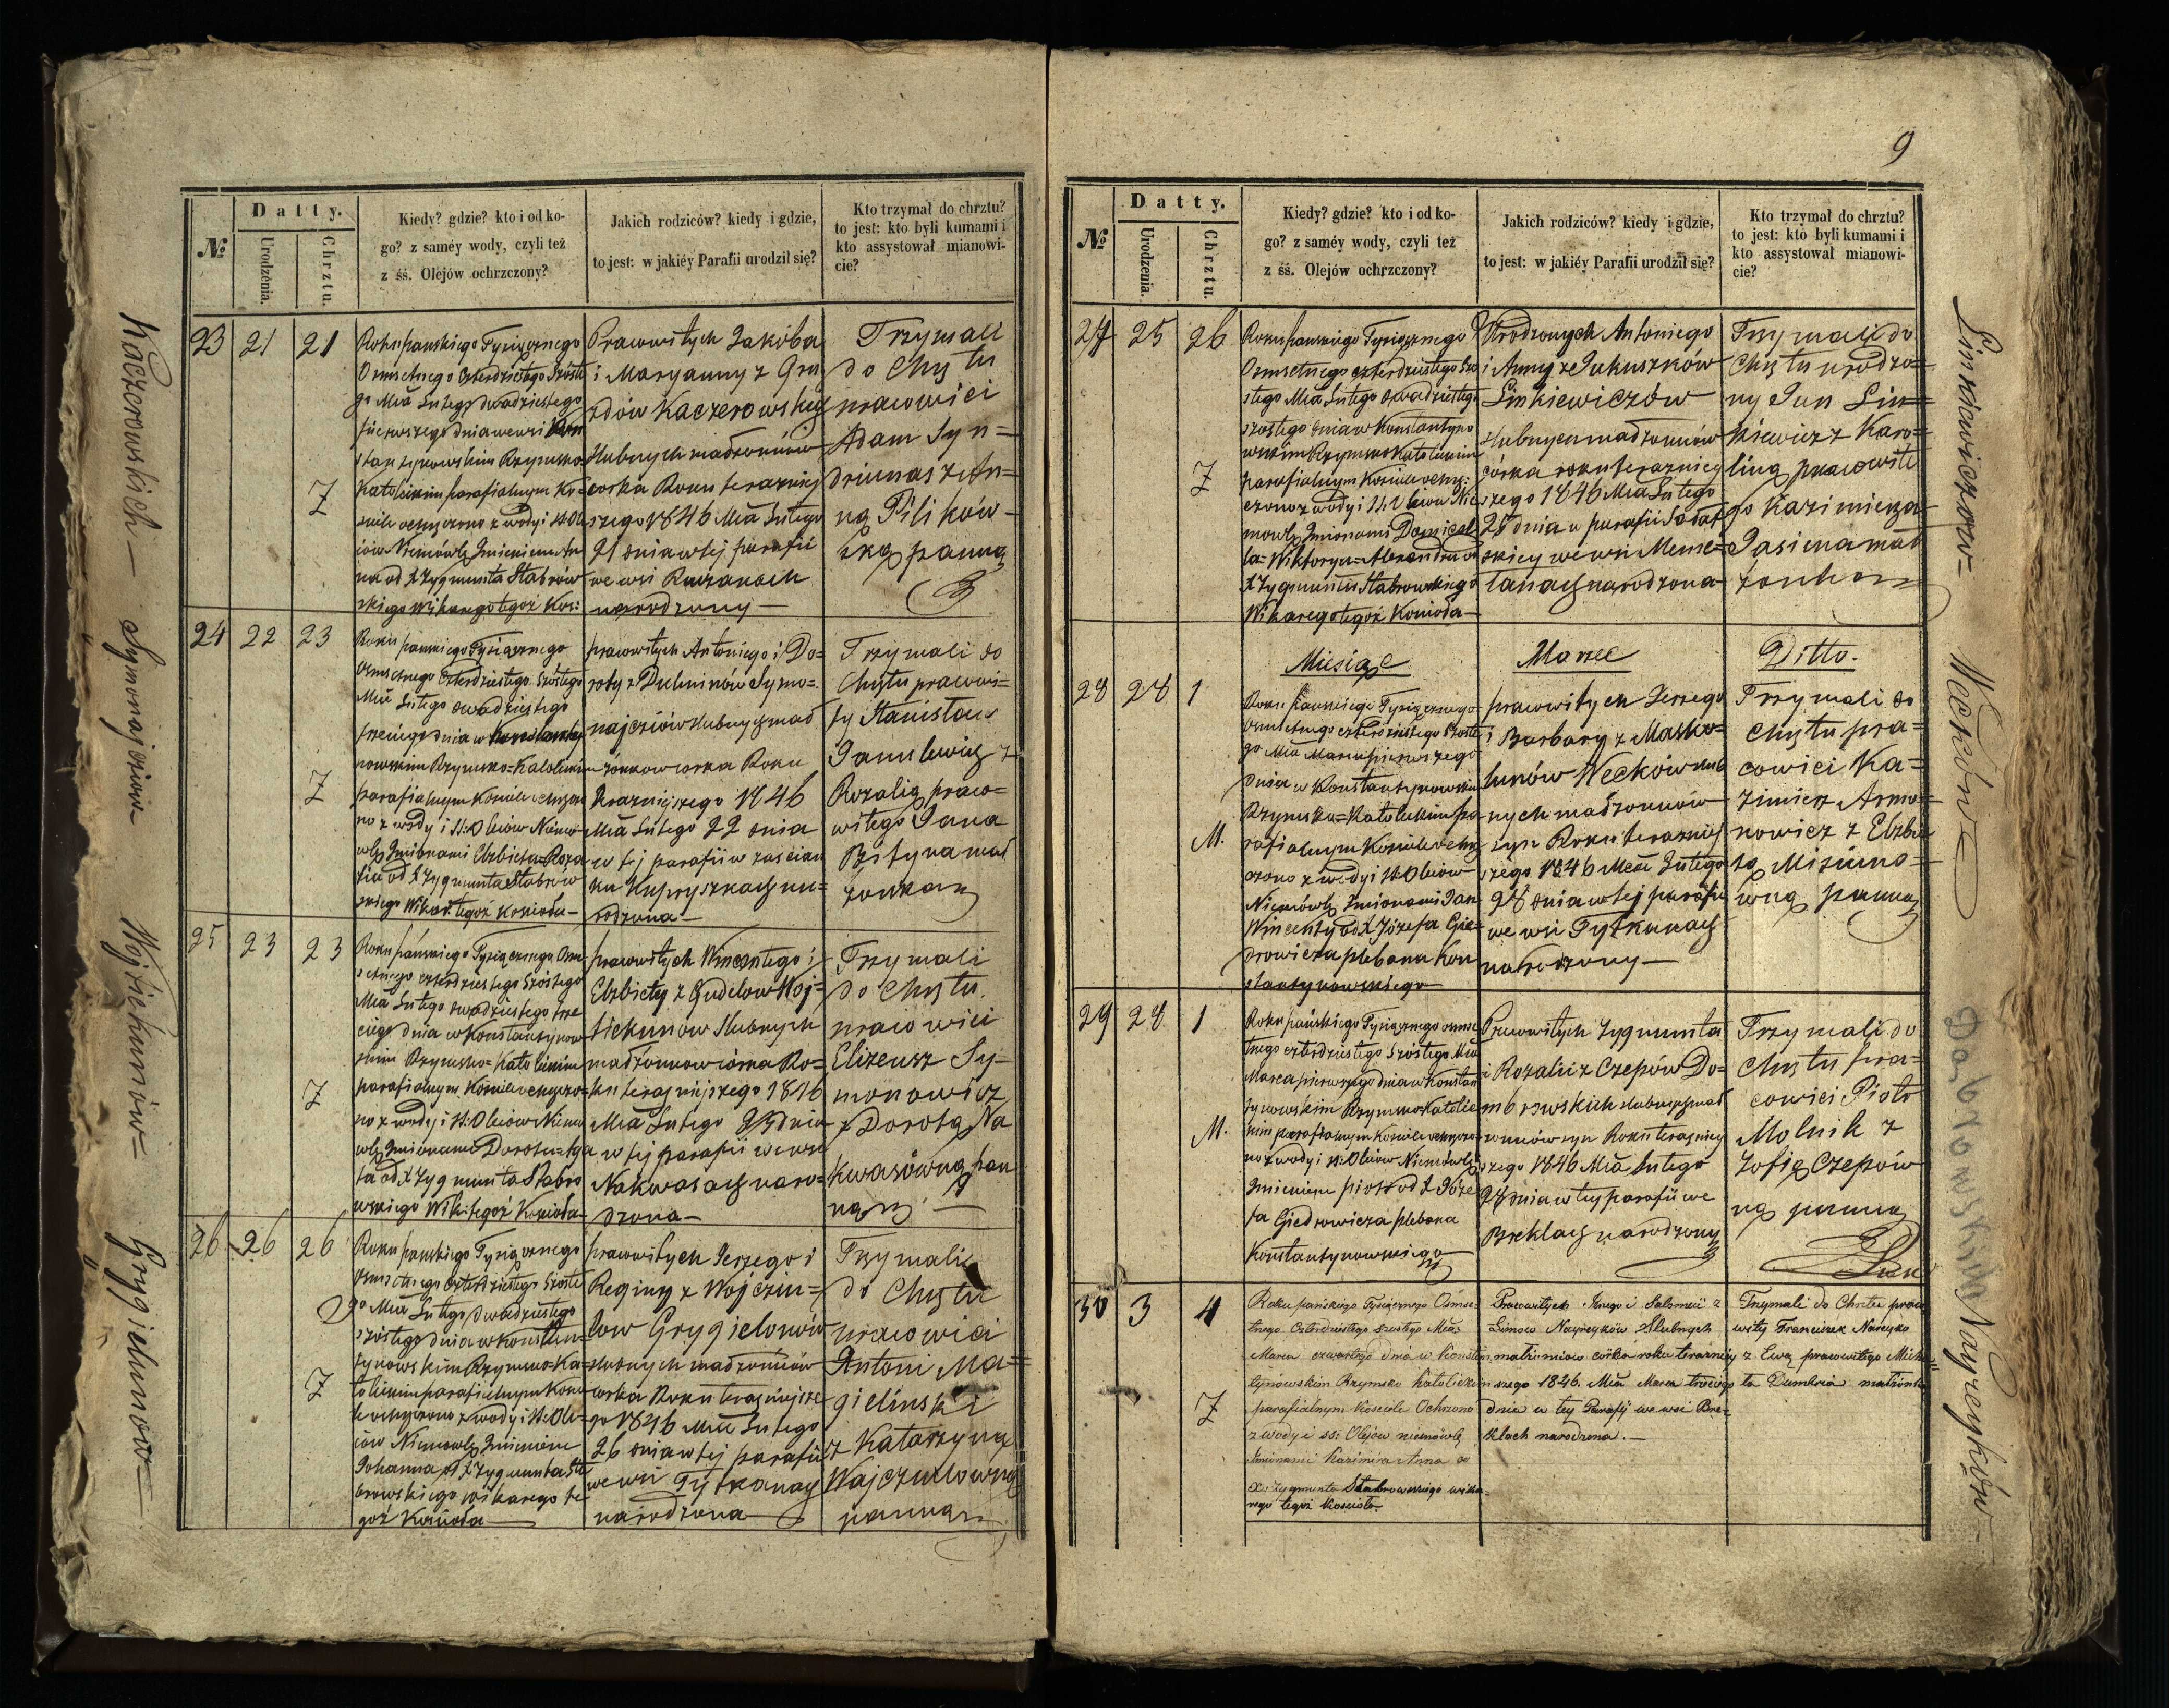 Kaczerowskich —
Symonajciów
Wojtiekunów =
Grygielunów —
№
Datty.
Urodzenia.
Chrztu.
Kiedy? gdzie? kto i od ko-
go? z saméy wody, czyli też
z śś. Olejów ochrzczony?
Jakich rodziców? kiedy i gdzie,
to jest: w jakiéy Parafii urodził się?
Kto trzymał do chrztu?
to jest: kto byli kumami i
kto assystował mianowi-
cie?
23 21 21
Ż
Roku pańskiego Tysiącznego
Osmsetnego czterdziestego szóste
go Mca Lutego dwadziestego
pierwszego dnia we wsi Kon
stantynowskim Rzymsko
Katolickim parafialnym Ko
ściele ochrzczono z wody i SS: Ole
iów Niemówlę Imieniem An
na od X Zygmunta Stabrow
skiego Wikarego tegoż Koś:
Prawowitych Jakóba
i Maryanny z Gru
zdów Kaczerowskich
slubnych małżonków
corka Roku teraźniej
szego 1846 Mca Lutego
21 dnia w tej parafii
we wsi
narodzony —
Trzymali
do Chrztu
prawowici
Adam Syn=
driunas z An=
ną Pilików-
ską panną
24 22 23
Ż
Roku pańskiego Tysiącznego
Osmsetnego czterdziestego szóstego
Mca Lutego dwadziestego
trzeciego dnia w Konstanty
nowskim Rzymsko=Katolickim
parafialnym Kościele ochrzczo
no z wody i SS: Oleiów Niemó
wlę Imionami Elzbieta=Roza
lia od X Zygmunta Stabrow
skiego Wikar: tegoż Kościoła —
prawowitych Antoniego i Do=
roty z Dulninów Symo=
najciów slubnych mał
żonkow corka Roku
teraźniejszego 1846
Mca Lutego 22 dnia
w tej parafii w zaścian
ku Kupryszkach na=
rodzona —
Trzymali do
Chrztu prawowi=
ty Stanisław
Janulewicz z
Rozalią prawo=
witego Jana
Bstyna mał
żonką
25 23 23
Ż
Roku pańskiego Tysiącznego Osm
setnego czterdziestego szóstego
Mca Lutego dwadziestego trze
ciego dnia w Konstantynow
skim Rzymsko=Katolickim
parafialnym Kościele ochrzczo=
no z wody i SS: Oleiów Niemó
wlę Imionami Dorota=Aga
ta od X Zygmunta Stabro
wskiego Wik: tegoż Kościoła —
prawowitych Wincentego i
Elzbiety z Gudelow Woj=
tiekunow slubnych
małżonkow córka Ro=
ku teraźniejszego 1846
Mca Lutego 23 dnia
w tej parafii we wsi
Nakwasach naro=
dzona —
Trzymali
do Chrztu
prawowici
Elizeusz Sy-
monowicz
z Dorotą Na
kwasówną pan
ną
26 26 26
Ż
Roku pańskiego Tysiącznego
Osmsetnego czterdziestego szóste
go Mca Lutego dwadziestego
szóstego dnia w Konstan=
tynowskim Rzymsko=Ka=
tolickim parafialnym Koście
le ochrzczono z wody i SS: Ole=
iów Niemowlę Imieniem
Johanna od X Zygmunta Sta
browskiego wikarego te
goż Kościoła —
prawowitych Jerzego i
Reginy z Wojczu=
low Grygielunów
slubnych małżonków
corka Roku teraźniejsze
go 1846 Mca Lutego
26 dnia w tej parafii
we wsi Tytkanach
narodzona —
Trzymali
do Chrztu
prawowici
Antoni Ma=
gielinski
z Katarzyną
Wajczulowną
panną
9
№
Datty.
Urodzenia.
Chrztu.
Kiedy? gdzie? kto i od ko-
go? z saméy wody, czyli też
z śś. Olejów ochrzczony?
Jakich rodziców? kiedy i gdzie,
to jest: w jakiéy Parafii urodził się?
Kto trzymał do chrztu?
to jest: kto byli kumami i
kto assystował mianowi-
cie?
27 25 26
Ż
Roku pańskiego Tysiącznego
Osmsetnego czterdziestego szó
stego Mca Lutego dwadziestego
szóstego dnia w Konstantyno
wskim Rzymsko Katolickim
parafialnym Kościele ochrz:
czono z wody i SS: Oleiów Nie
mowlę Imionami Domicel
la=Wiktorya=Alexandra od
X Zygmunta Stabrowskiego
Wikarego tegoż Kościoła —
Urodzonych Antoniego
i Anny z Jukuszków
Linkiewiczów
slubnych małżonków
córka roku teraźniej
szego 1846 Mca Lutego
25 dnia w parafii Sadat
skiey we wsi Meme=
lanach narodzona
Trzymali do
Chrztu urodzo=
ny Jan Lin=
kiewicz z Karo=
liną prawowite
go Kazimierza
Jasiena mał
żonką
Miesiąc Marzec Ditto.
28 28 1
M.
Roku Pańskiego Tysiącznego
Osmsetnego czterdziestego szóste
go Mca Marca pierwszego
dnia w Konstantynowskim
Rzymsko=Katolickim pa
rafialnym Kościele ochrz
czono z wody i SS Oleiów
Niemówlę Imionami Jan
Wincenty od X Józefa Gie=
drowicza plebana Kon
stantynowskiego
prawowitych Jerzego
i Barbary z Masko=
lunów Weckow slub
nych małżonków
syn Roku teraźniej
szego 1846 Mca Lutego
28 dnia w tej parafii
we wsi Tytkanach
narodzony —
Trzymali do
Chrztu pra=
wowici Ka=
zimierz Armo=
nowicz z Elzbie
tą Misiuno=
wną panną
29 28 1
M.
Roku pańskiego Tysiącznego osmse
tnego czterdziestego szóstego Mca
Marca pierwszego dnia w Konstan
tynowskim Rzymsko Katolic
kim parafialnym Kościele ochrzczo
no z wody i SS: Oleiów Niemówlę
Imieniem Piotr od X Józe
fa Giedrowicza plebana
Konstantynowskiego
Prawowitych Zygmunta
i Rozalii z Czepów Do=
mbrowskich slubnych mał
żonków syn Roku teraźniej
szego 1846 Mca Lutego
28 dnia w tey parafii we
Breklach narodzony
Trzymali do
Chrztu pra=
wowici Piotr
Molnik z
Zofią Czepów
ną panną
30 3 4
Ż
Roku pańskiego Tysiącznego Ośmse-
tnego Czterdziestego szóstego Mca
Marca czwartego dnia w Konstan
tynowskim Rzymsko Katolickim
parafialnym Kościele Ochrzczono
z wody i SS: Olejów niemówlę
Imionami Kazimira Anna od
X. Zygmunta Stabrowskiego wika-
rego tegoż Kościoła
Prawowitych Jerzego i Salomeii z
Limow Nayrzyków Slubnych
małżonkow córka roku teraźniey
szego 1846. Mca Marca trzeciego
dnia w tey Parafij we wsi Bre-
klach narodzona. —
Trzymali do Chrztu prawo
wity Franciszek Narcyko
z Ewą prawowitego Micha
ła Dumbria małżonką
Linkiewiczów =
Weckow
Dąbrowskich
Nayrzyków —